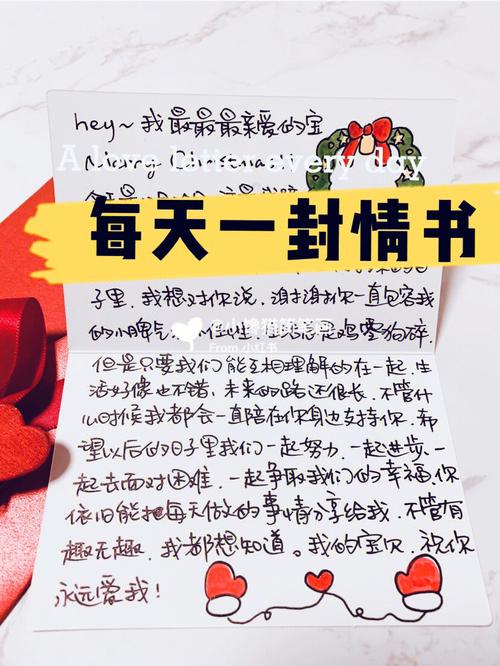 hey~我最最最亲爱的宝
Merry Christmas
A love letter every day
每天一封情书
子里,我想对你说,谢谢你一直包容我
的小脾气
鸡零狗碎,
@小馋猫笑笑吖
From 小红书
但是只要我们能互相理解的在一起,生
活好像也不错,未来的路还很长,不管什
么时候我都会一直陪在你身边支持你,希
望以后的日子里我们一起努力,一起进步,一
起去面对困难,一起争取我们的幸福,你
依旧能把每天做的事情分享给我,不管有
趣无趣,我都想知道。我的宝贝,祝你
永远爱我!